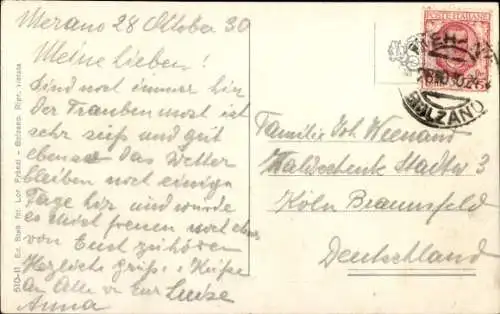 Merano 28 Oktober 30
Meine lieben!
Sind noch immer hir
der Traubenmost ist
sehr süß und gut
ebenso das Wetter
bleiben noch einige
Tage hir und würde
es mich freuen noch etwas
von Euch zu hören
Herzliche Grüße u. Küsse
an Alle v. Eur Luise
Anna
Familie Joh Weenand
Waldschenk Stadtw 3
Köln Braunsfeld
Deutschland
POSTE ITALIANE
BOLZANO
510-11 Ed. Stab. fot. Lor. Fränzl - Bolzano. Ripr. vietata